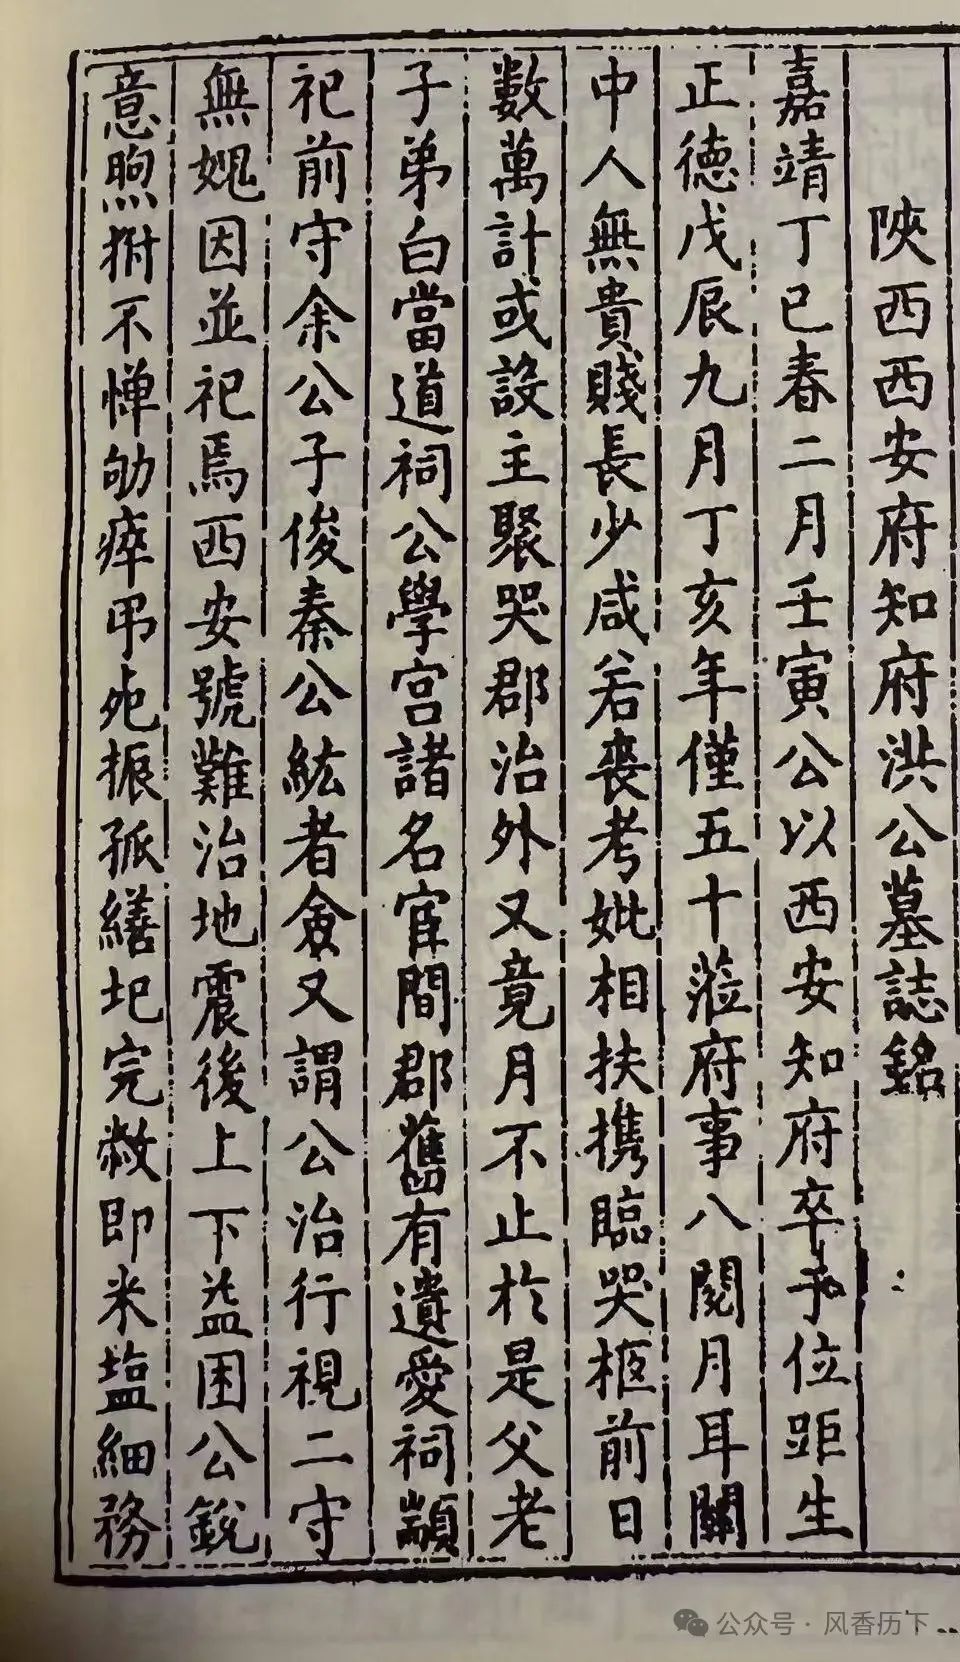 陝西西安府知府洪公墓誌銘
嘉靖丁巳春二月壬寅公以西安知府卒于位距生
正德戊辰九月丁亥年僅五十蒞府事八閱月耳關
中人無貴賤長少咸若喪考妣相扶攜臨哭柩前日
數萬計或設主聚哭郡治外又竟月不止於是父老
子弟白當道祠公學宮諸名宦間郡舊有遺愛祠顓
祀前守余公子俊秦公紘者僉又謂公治行視二守
無媿因並祀焉西安號難治地震後上下益困公銳
意煦拊不憚劬瘁弔死振孤繕圮完敝即米塩細務
公众号·风香历下